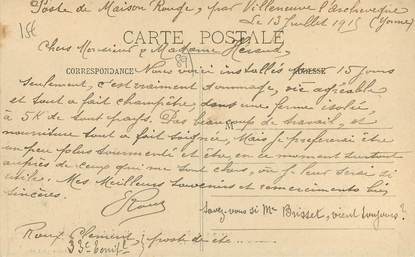 Poste de Maison Rouge, par Villeneuve l'archeveque
Le 13 Juillet 1915 (Yonne)
15€
CARTE POSTALE
Chers Monsieur, Madame Héraud,
89
CORRESPONDANCE Nous voici installés pour 15 jours
ADRESSE
seulement, c'est vraiment dommage, vie agréable
et tout a fait champêtre, dans une ferme isolée,
à 5K de tout pays. Pas beaucoup de travail, et
M
nourriture tout a fait soignée, Mais je prefererai être
un peu plus tourmenté et être, en ce moment surtout
auprès de ceux qui me sont chers, ou je leur serai si
utile. Mes Meilleurs Souvenirs et remerciements bien
sincères.
Roux
Savez-vous si Mr Brisset, vient toujours?
Roux Clement, poste de etc......
33e